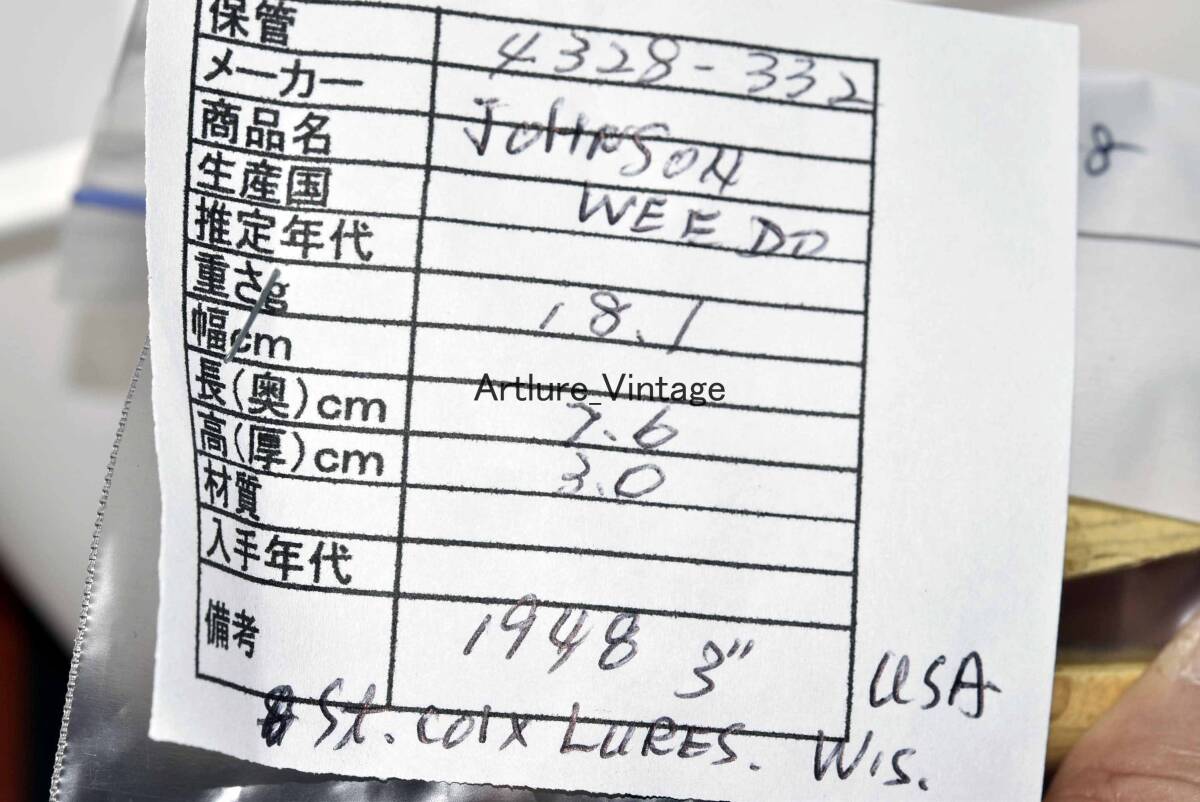 保管 4328-332
メーカー JOHNSON
商品名 WEE DO
生産国
推定年代
重さg 18.1
幅cm
長(奥)cm 7.6
高(厚)cm 3.0
材質
入手年代
備考 1948 3" USA
St. COIX LURES. WIS.
8
Artlure_Vintage